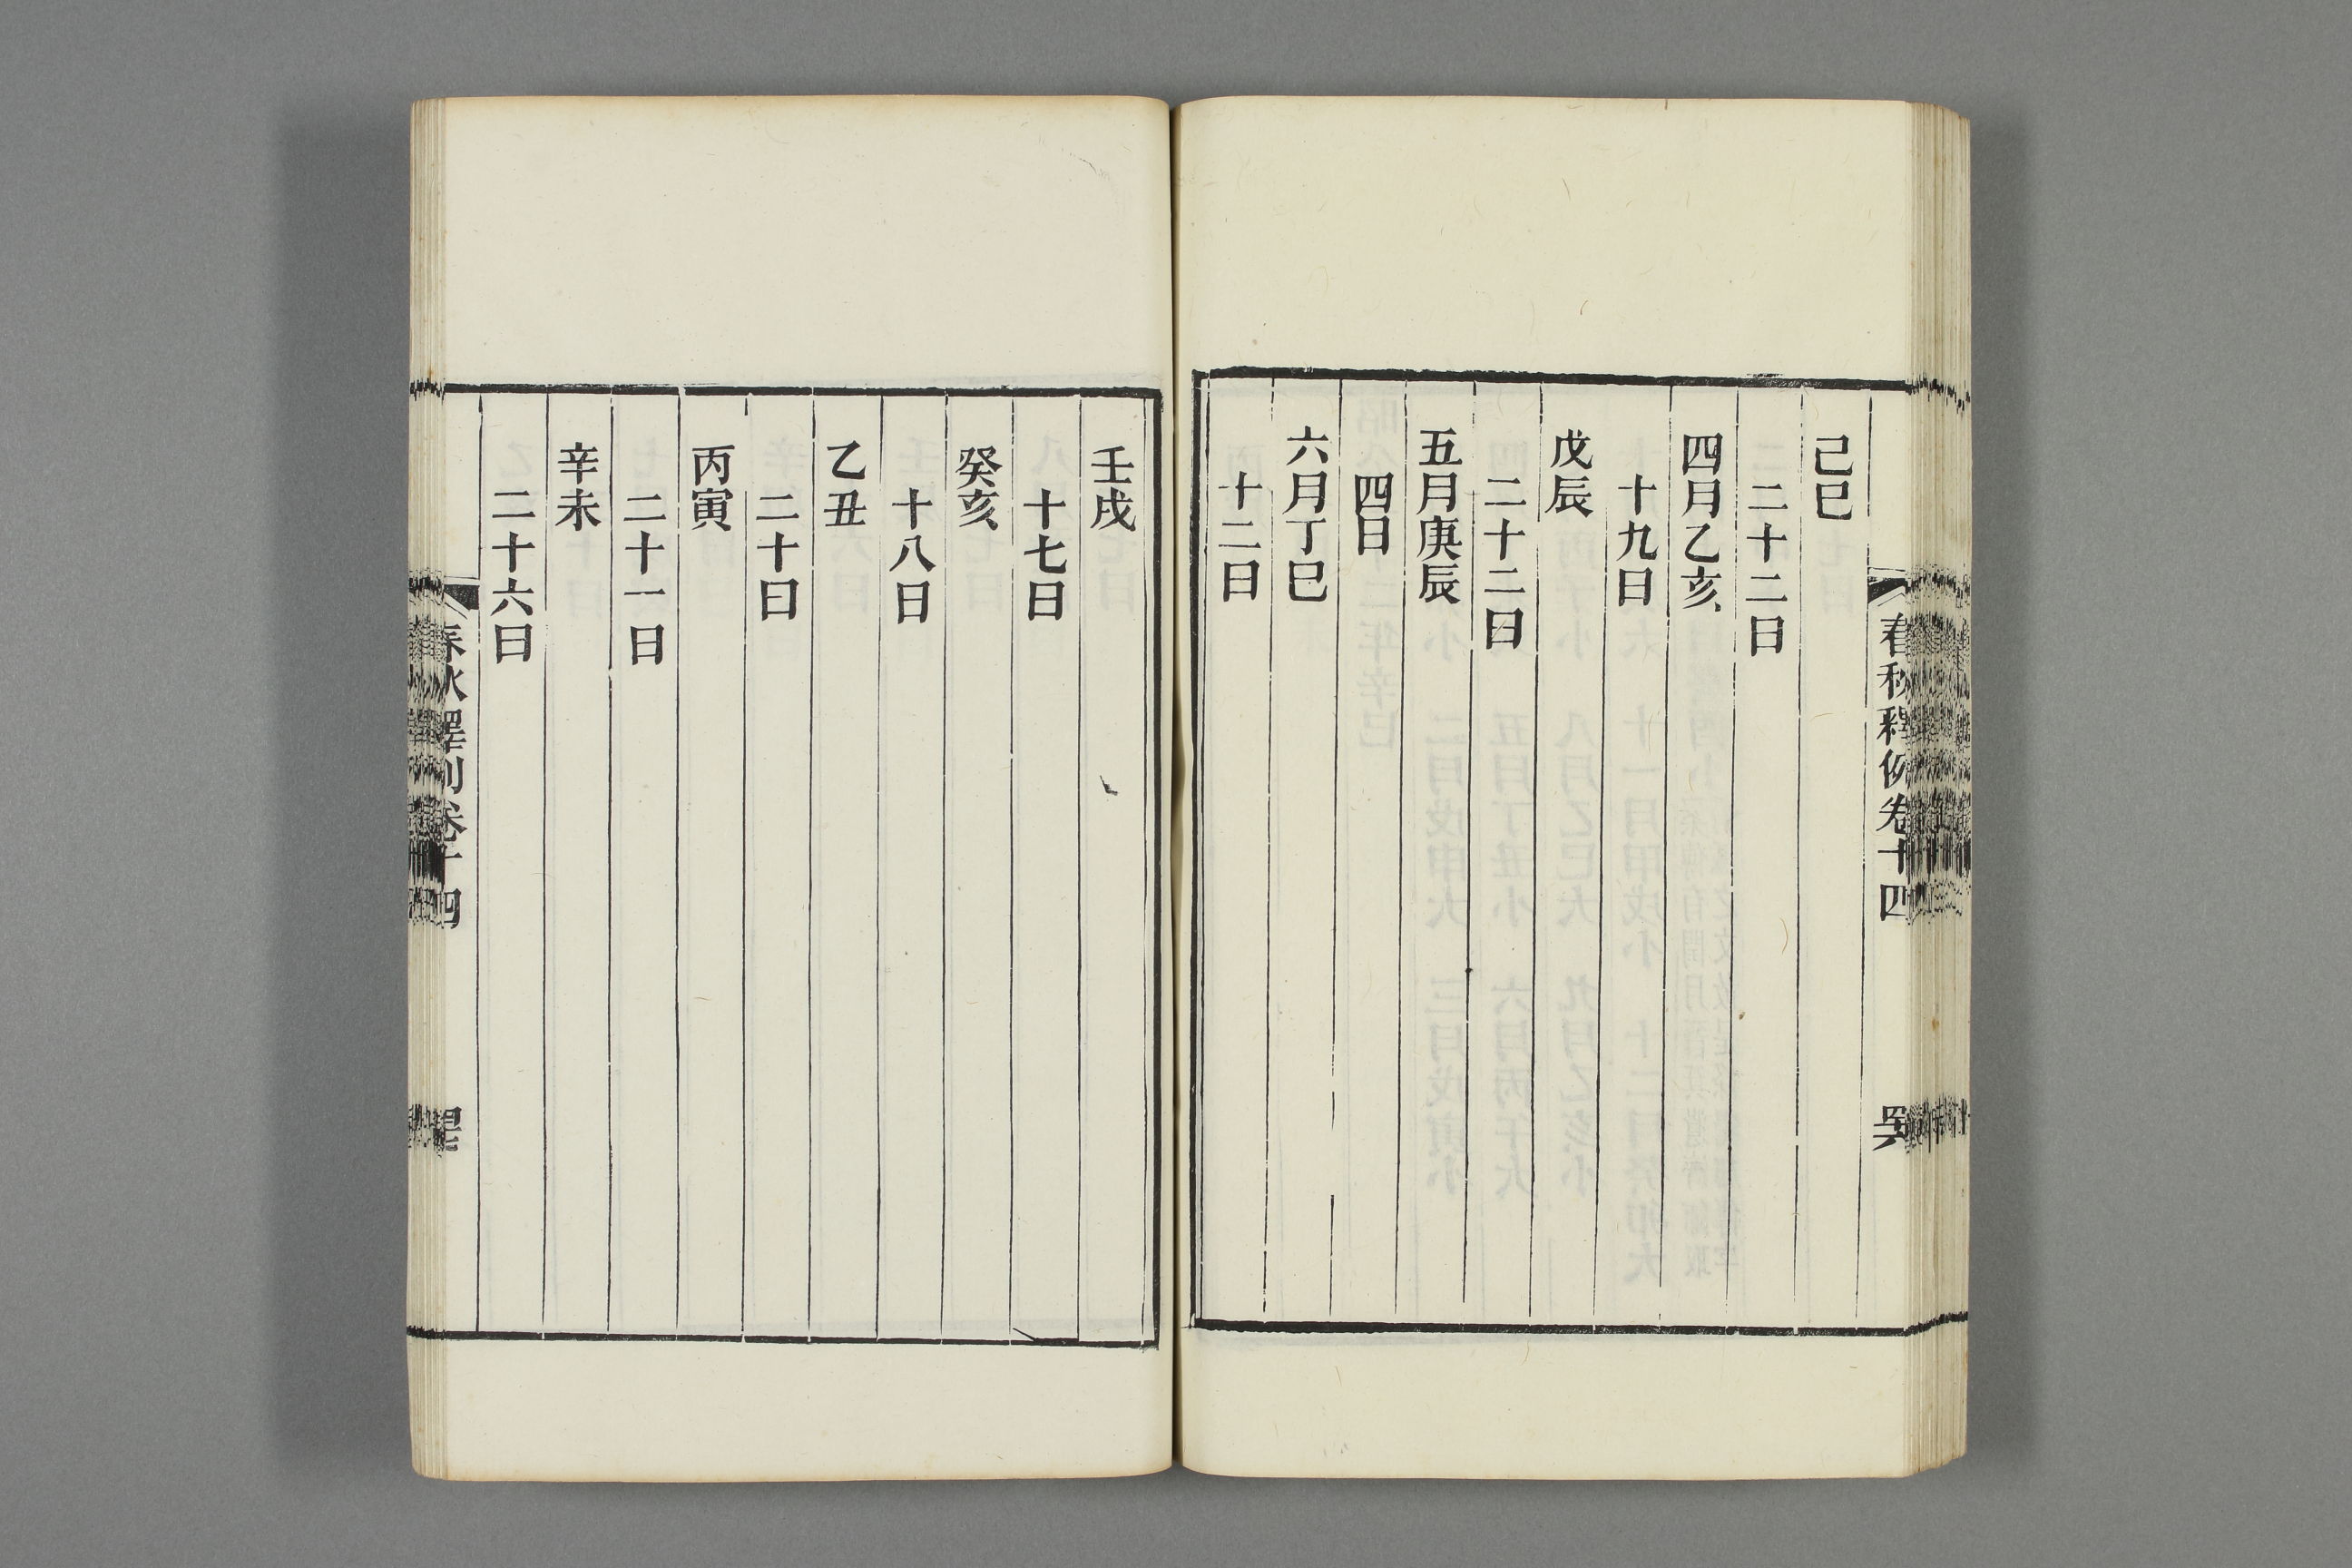 春秋釋例卷十四
己巳
二十二日
四月乙亥
十九日
戊辰
二十二日
五月庚辰
四日
六月丁巳
十二日
壬戌
十七日
癸亥
十八日
乙丑
二十日
丙寅
二十一日
辛未
二十六日
春秋釋例卷十四